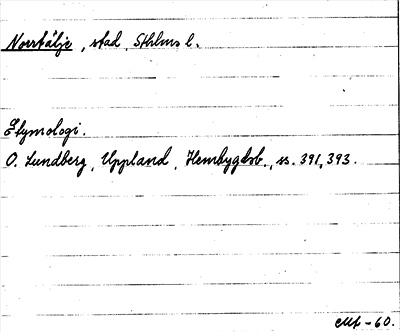 Norrtälje, stad, Sthlms l.
Etymologi.
O. Lundberg, Uppland, Hembygdsb., ss. 391, 393.
-60.